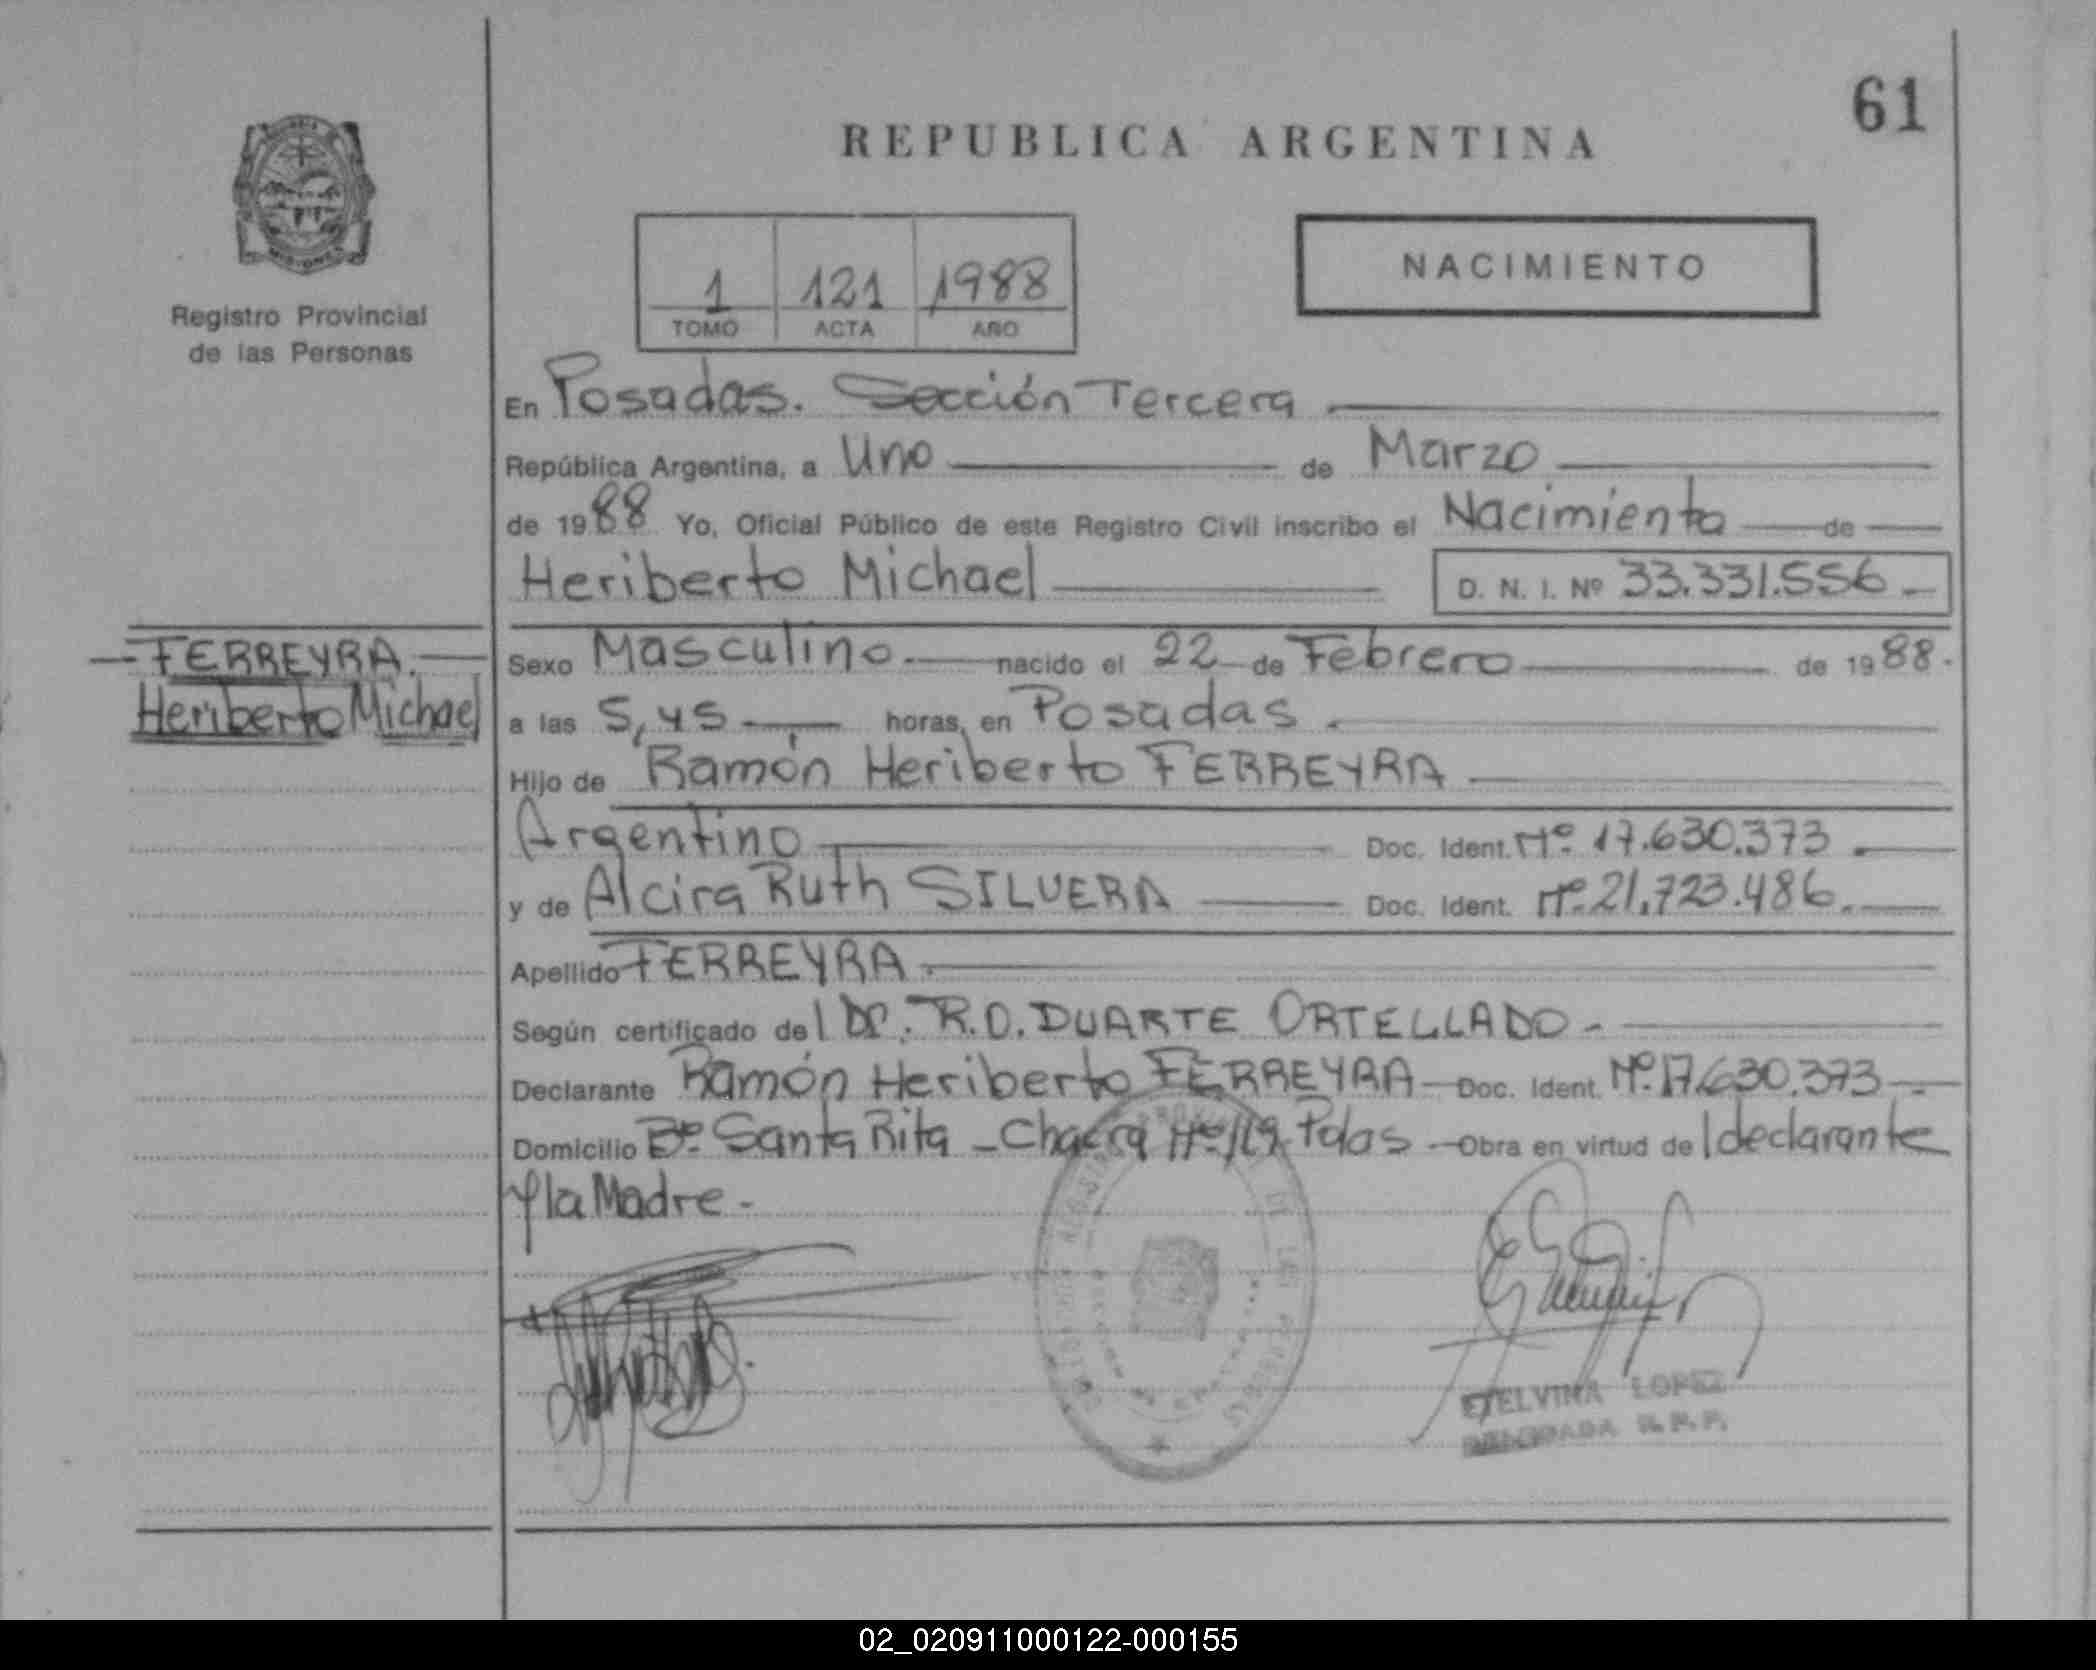 61
REPUBLICA ARGENTINA
NACIMIENTO
1 121 1988
TOMO ACTA AÑO
Registro Provincial
de las Personas
En Posadas. Sección Tercera
República Argentina, a Uno de Marzo
de 1988 Yo, Oficial Público de este Registro Civil inscribo el Nacimiento de
Heriberto Michael D. N. I. Nº 33.331.556
FERREYRA.
Heriberto Michael
Sexo Masculino nacido el 22 de Febrero de 1988.
a las 5,45 horas, en Posadas.
Hijo de Ramón Heriberto FERREYRA
Argentino Doc. Ident. Nº 17.630.373.
y de Alcira Ruth SILVERA Doc. Ident. Nº 21.723.486.
Apellido FERREYRA.
Según certificado del Dr. R.O. DUARTE ORTELLADO.
Declarante Ramón Heriberto FERREYRA Doc. Ident. Nº 17.630.373
Domicilio Bº Santa Rita - Chacra Nº Pdas Obra en virtud del declarante
y la Madre.
ETELVINA LOPEZ
DELEGADA R.P.P.
02_020911000122-000155